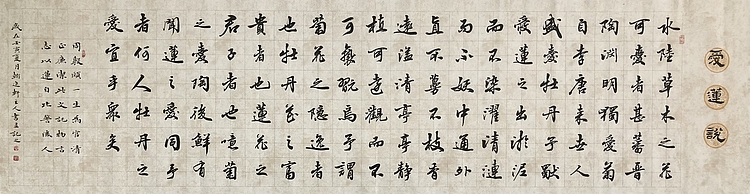 愛蓮說
水陸草木之花
可愛者甚蕃晉
陶淵明獨愛菊
自李唐來世人
盛愛牡丹予獨
愛蓮之出淤泥
而不染濯清漣
而不妖中通外
直不蔓不枝香
遠益清亭亭靜
植可遠觀而不
可褻翫焉予謂
菊花之隱逸者
也牡丹花之富
貴者也蓮花之
君子者也噫菊
之愛陶後鮮有
聞蓮之愛同予
者何人牡丹之
愛宜乎眾矣
周敦頤一生為官清
正廉潔此文記物言
志以蓮自比警後人
歲在壬寅夏月主人書並記之